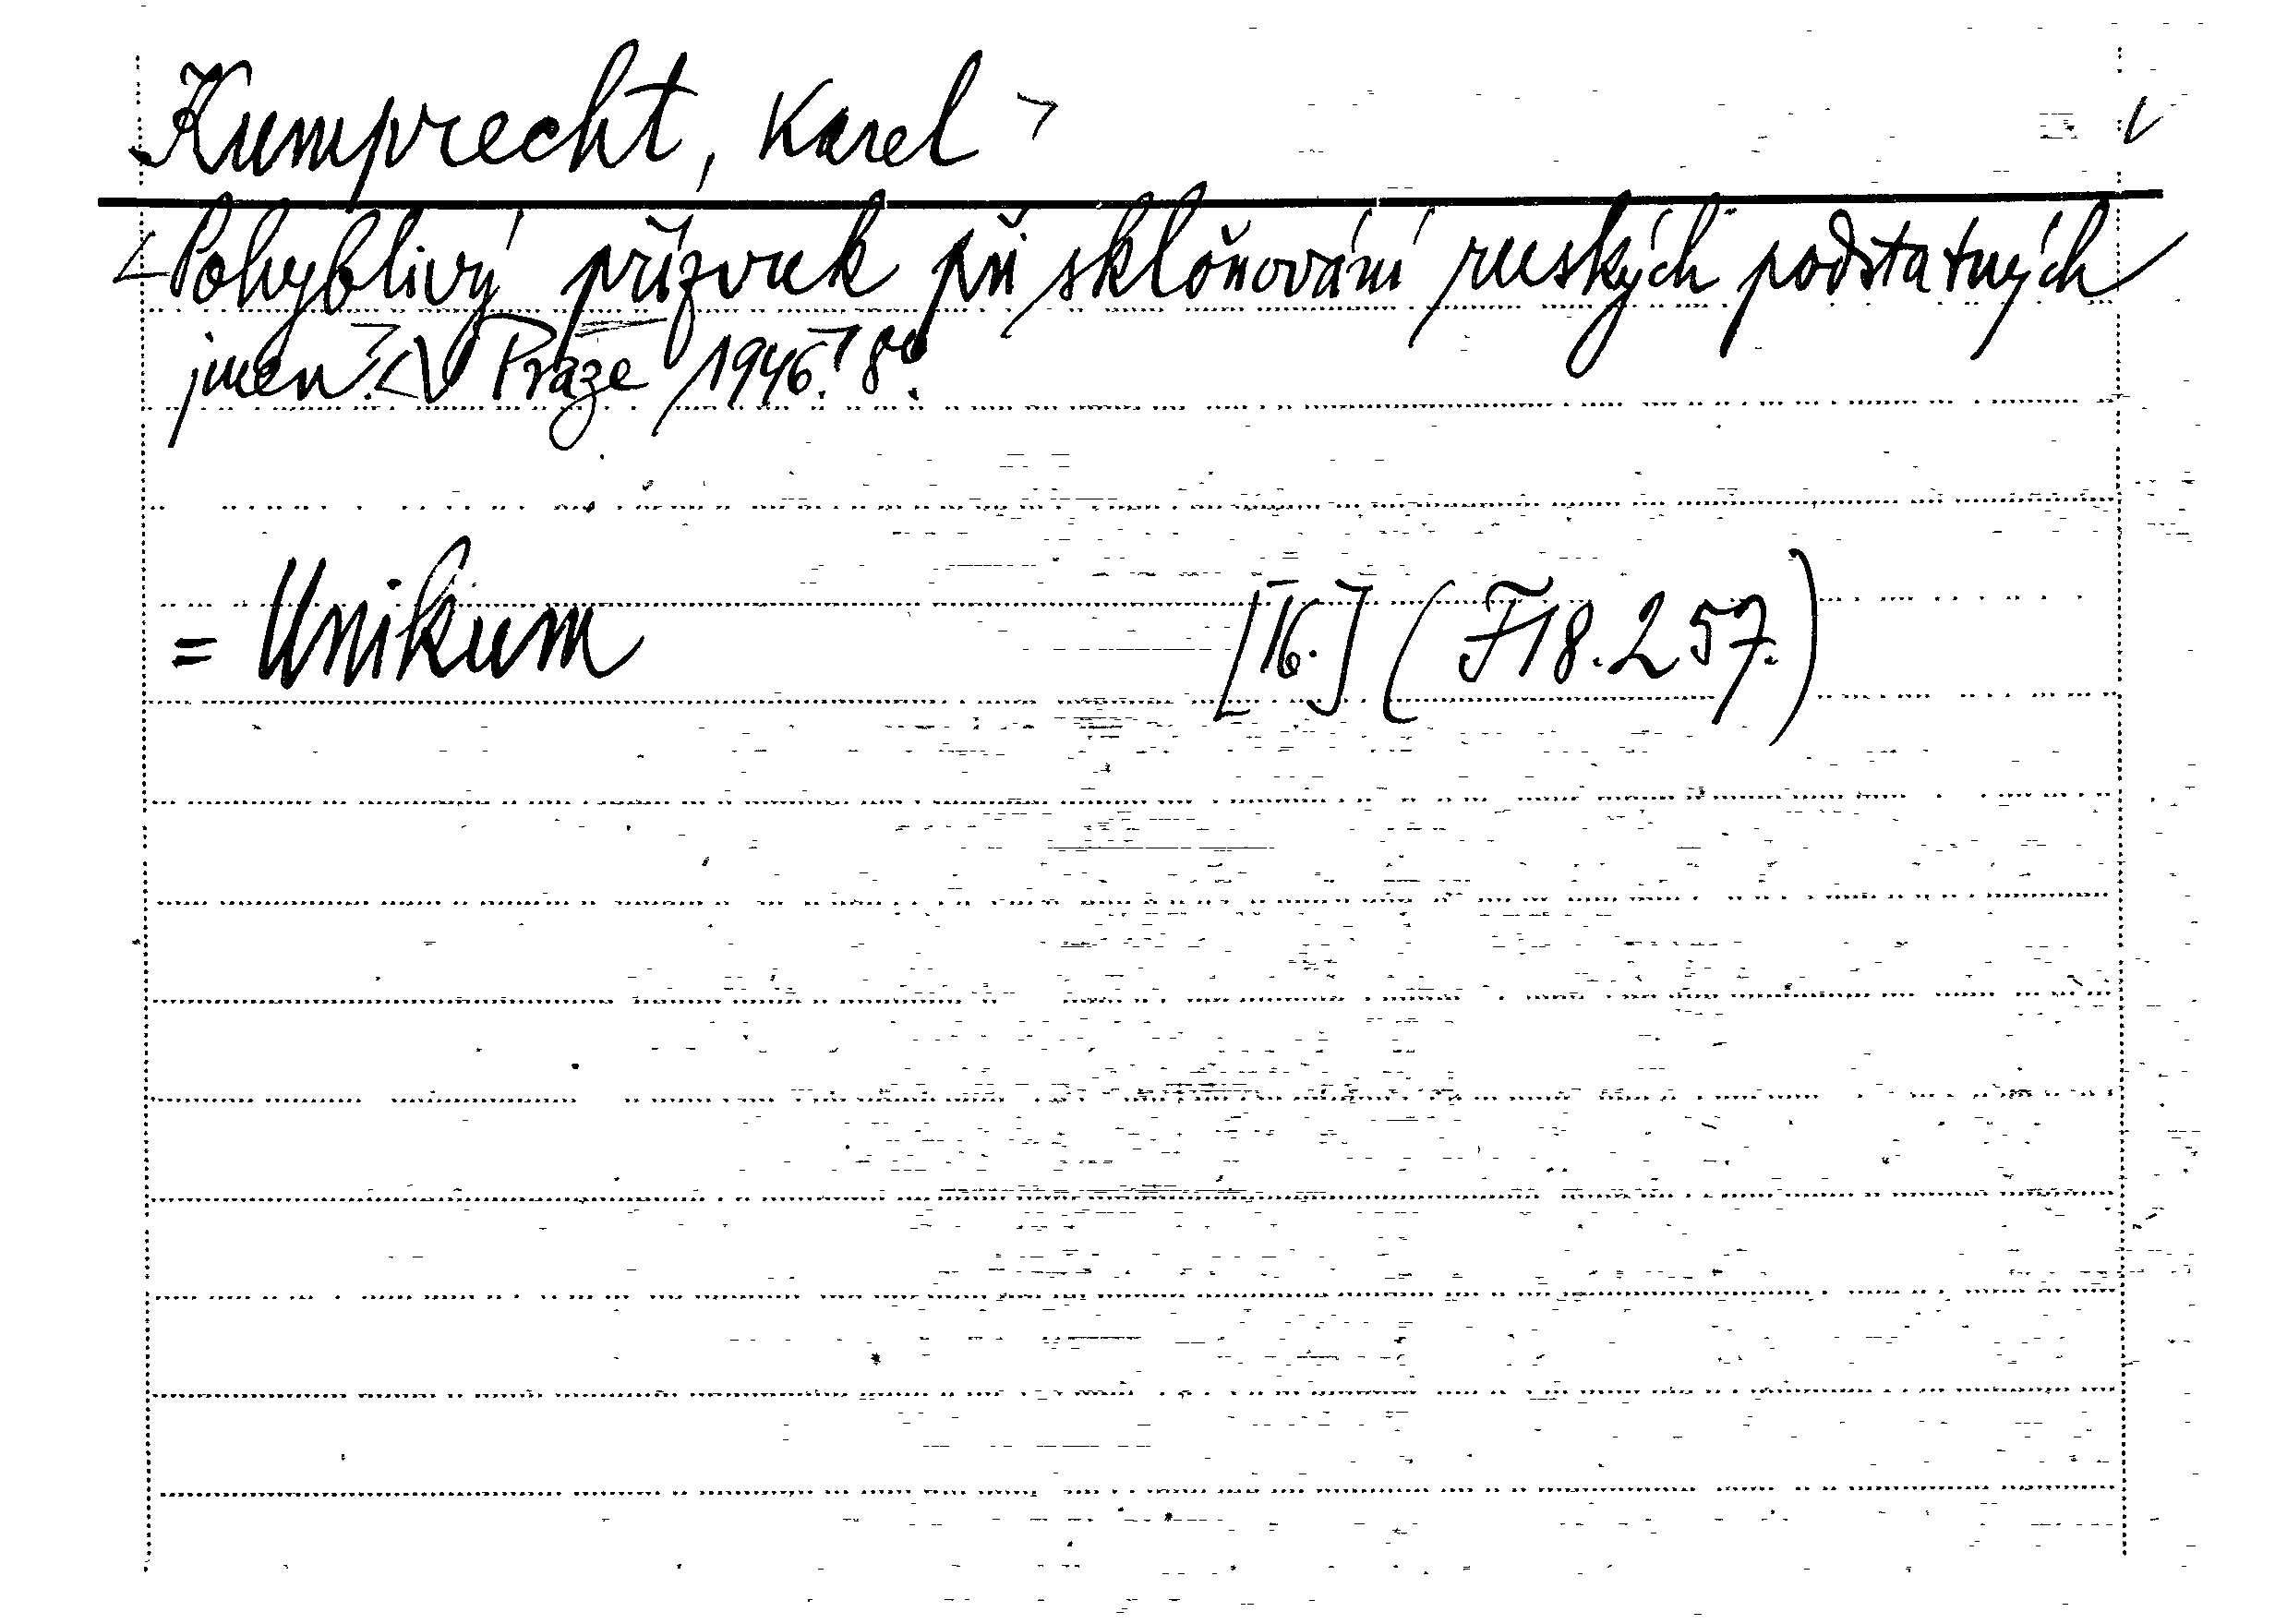 Kumprecht, Karel
Pohyblivý přízvuk při skloňování ruských podstatných
jmen. V Praze 1946. 8°.
= Unikum [16.] (F18.257.)